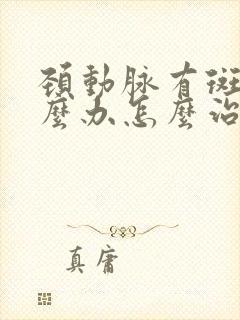 頚動脉有斑
麼办怎麼治
真庸